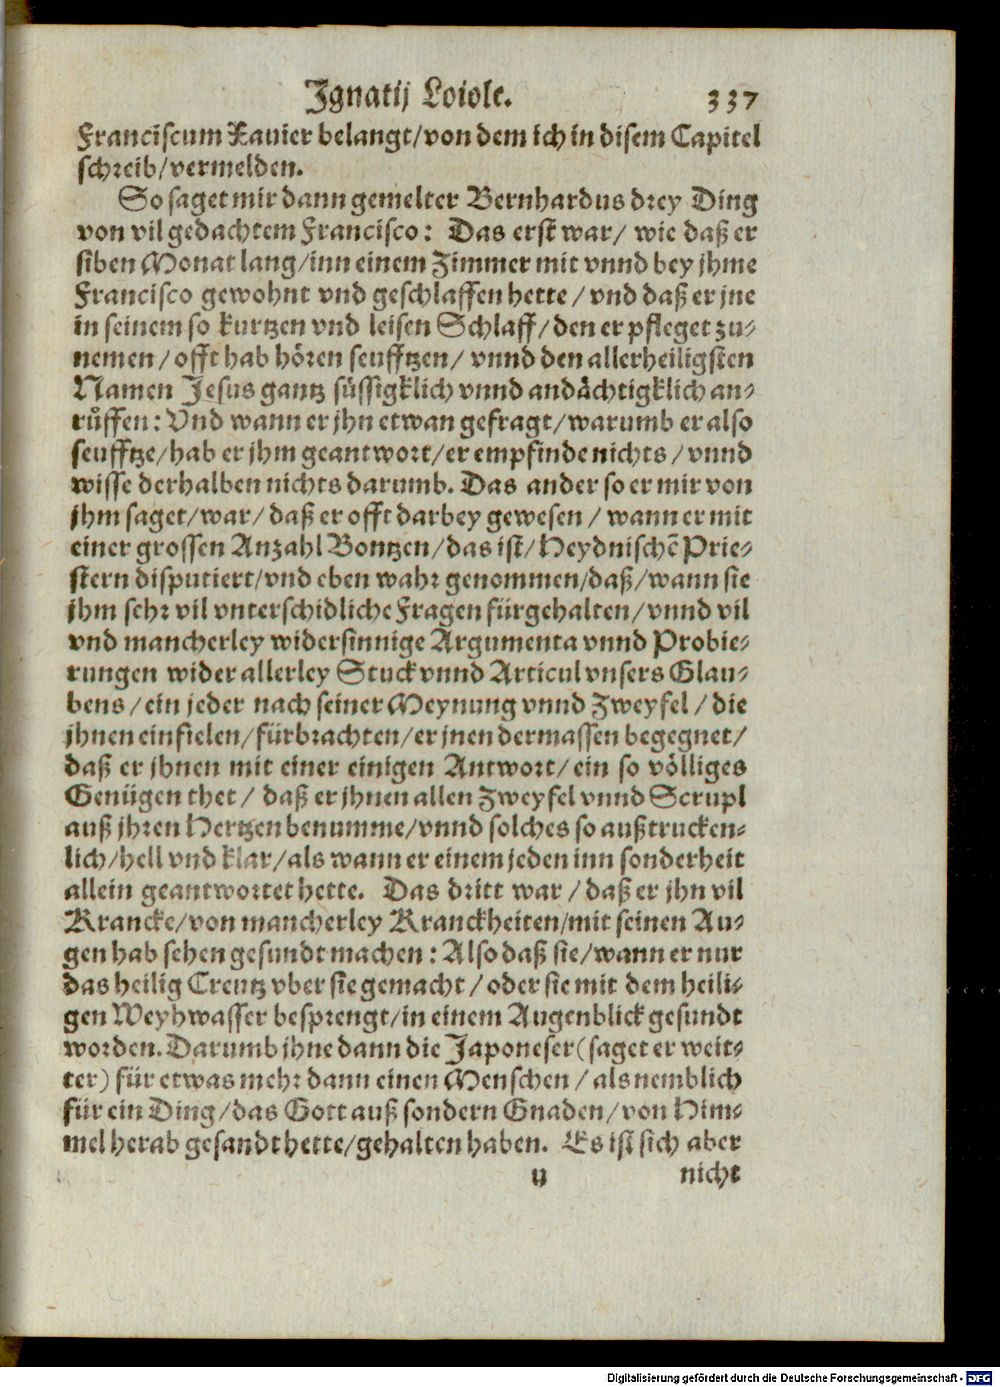 Ignatij Loiole. 337
Franciscum Xauier belangt/von dem ich in disem Capitel
schreib/vermelden.
So saget mir dann gemelter Bernhardus drey Ding
von vil gedachtem Francisco: Das erst war/ wie daß er
siben Monat lang/inn einem Zimmer mit vnnd bey jhme
Francisco gewohnt vnd geschlaffen hette/vnd daß er jne
in seinem so kurtzen vnd leisen Schlaff/den er pfleget zu-
nemen/offt hab hören seufftzen/ vnnd den allerheiligsten
Namen Jesus gantz süssigklich vnnd andächtigklich an-
růffen: Vnd wann er jhn etwan gefragt/warumb er also
seufftze/hab er jhm geantwort/er empfinde nichts/vnnd
wisse derhalben nichts darumb. Das ander so er mir von
jhm saget/war/ daß er offt darbey gewesen/ wann er mit
einer grossen Anzahl Bontzen/das ist/Heydnischẽ Prie-
stern disputiert/vnd eben wahr genommen/daß/wann sie
jhm sehr vil vnterschidliche Fragen fürgehalten/vnnd vil
vnd mancherley widersinnige Argumenta vnnd Probie-
rungen wider allerley Stuck vnnd Articul vnsers Glau-
bens/ein jeder nach seiner Meynung vnnd Zweyfel/die
jhnen einfielen/fürbrachten/er jnen dermassen begegnet/
daß er jhnen mit einer einigen Antwort/ein so völliges
Genügen thet/ daß er jhnen allen Zweyfel vnnd Scrupl
auß jhren Hertzen benumme/vnnd solches so außtrucken-
lich/hell vnd klar/als wann er einem jeden inn sonderheit
allein geantwortet hette. Das dritt war/daß er jhn vil
Krancke/von mancherley Kranckheiten/mit seinen Au-
gen hab sehen gesundt machen: Also daß sie/wann er nur
das heilig Creutz vber sie gemacht/oder sie mit dem heili-
gen Weyhwasser besprengt/in einem Augenblick gesundt
worden. Darumb jhne dann die Japoneser (saget er weit-
ter) für etwas mehr dann einen Menschen/als nemblich
für ein Ding/das Gott auß sondern Gnaden/von Him-
mel herab gesandt hette/gehalten haben. Es ist sich aber
y nicht
Digitalisierung gefördert durch die Deutsche Forschungsgemeinschaft - DFG